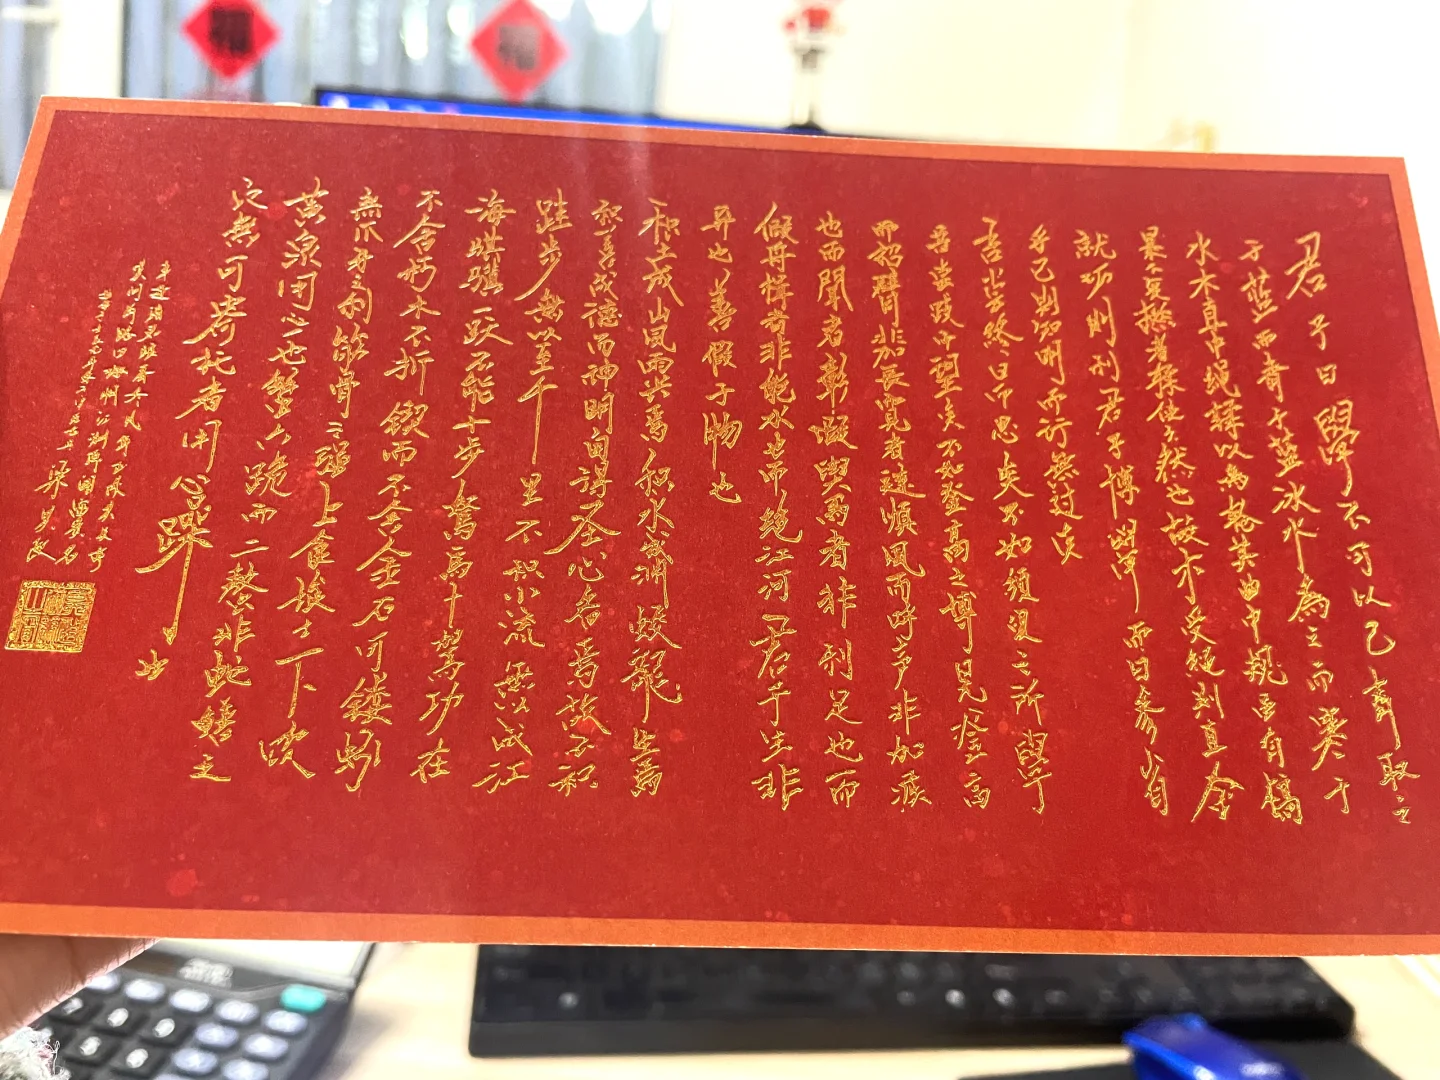 君子曰學不可以已青取之
于藍而青于藍冰水為之而寒于
水木直中繩輮以為輪其曲中規雖有槁
暴不復挺者輮使之然也故木受繩則直金
就礪則利君子博學而日參省
乎己則知明而行無過矣
吾嘗終日而思矣不如須臾之所學
吾嘗跂而望矣不如登高之博見登高
而招臂非加長見者遠順風而呼聲非加疾
也而聞者彰假輿馬者非利足也而
假舟楫者非能水也而絕江河君子生非
异也善假于物也
积土成山風雨興焉积水成淵蛟龍生焉
积善成德而神明自得圣心者焉故不积
跬步無以至千里不积小流無以成江
海騏驥一跃不能十步駑馬十駕功在
不舍朽木不折鍥而不舍金石可鏤蚓
無爪牙之利筋骨之强上食埃土下飲
黃泉用心也蟹六跪而二螯非蛇鱔之
穴無可寄托者用心躁也